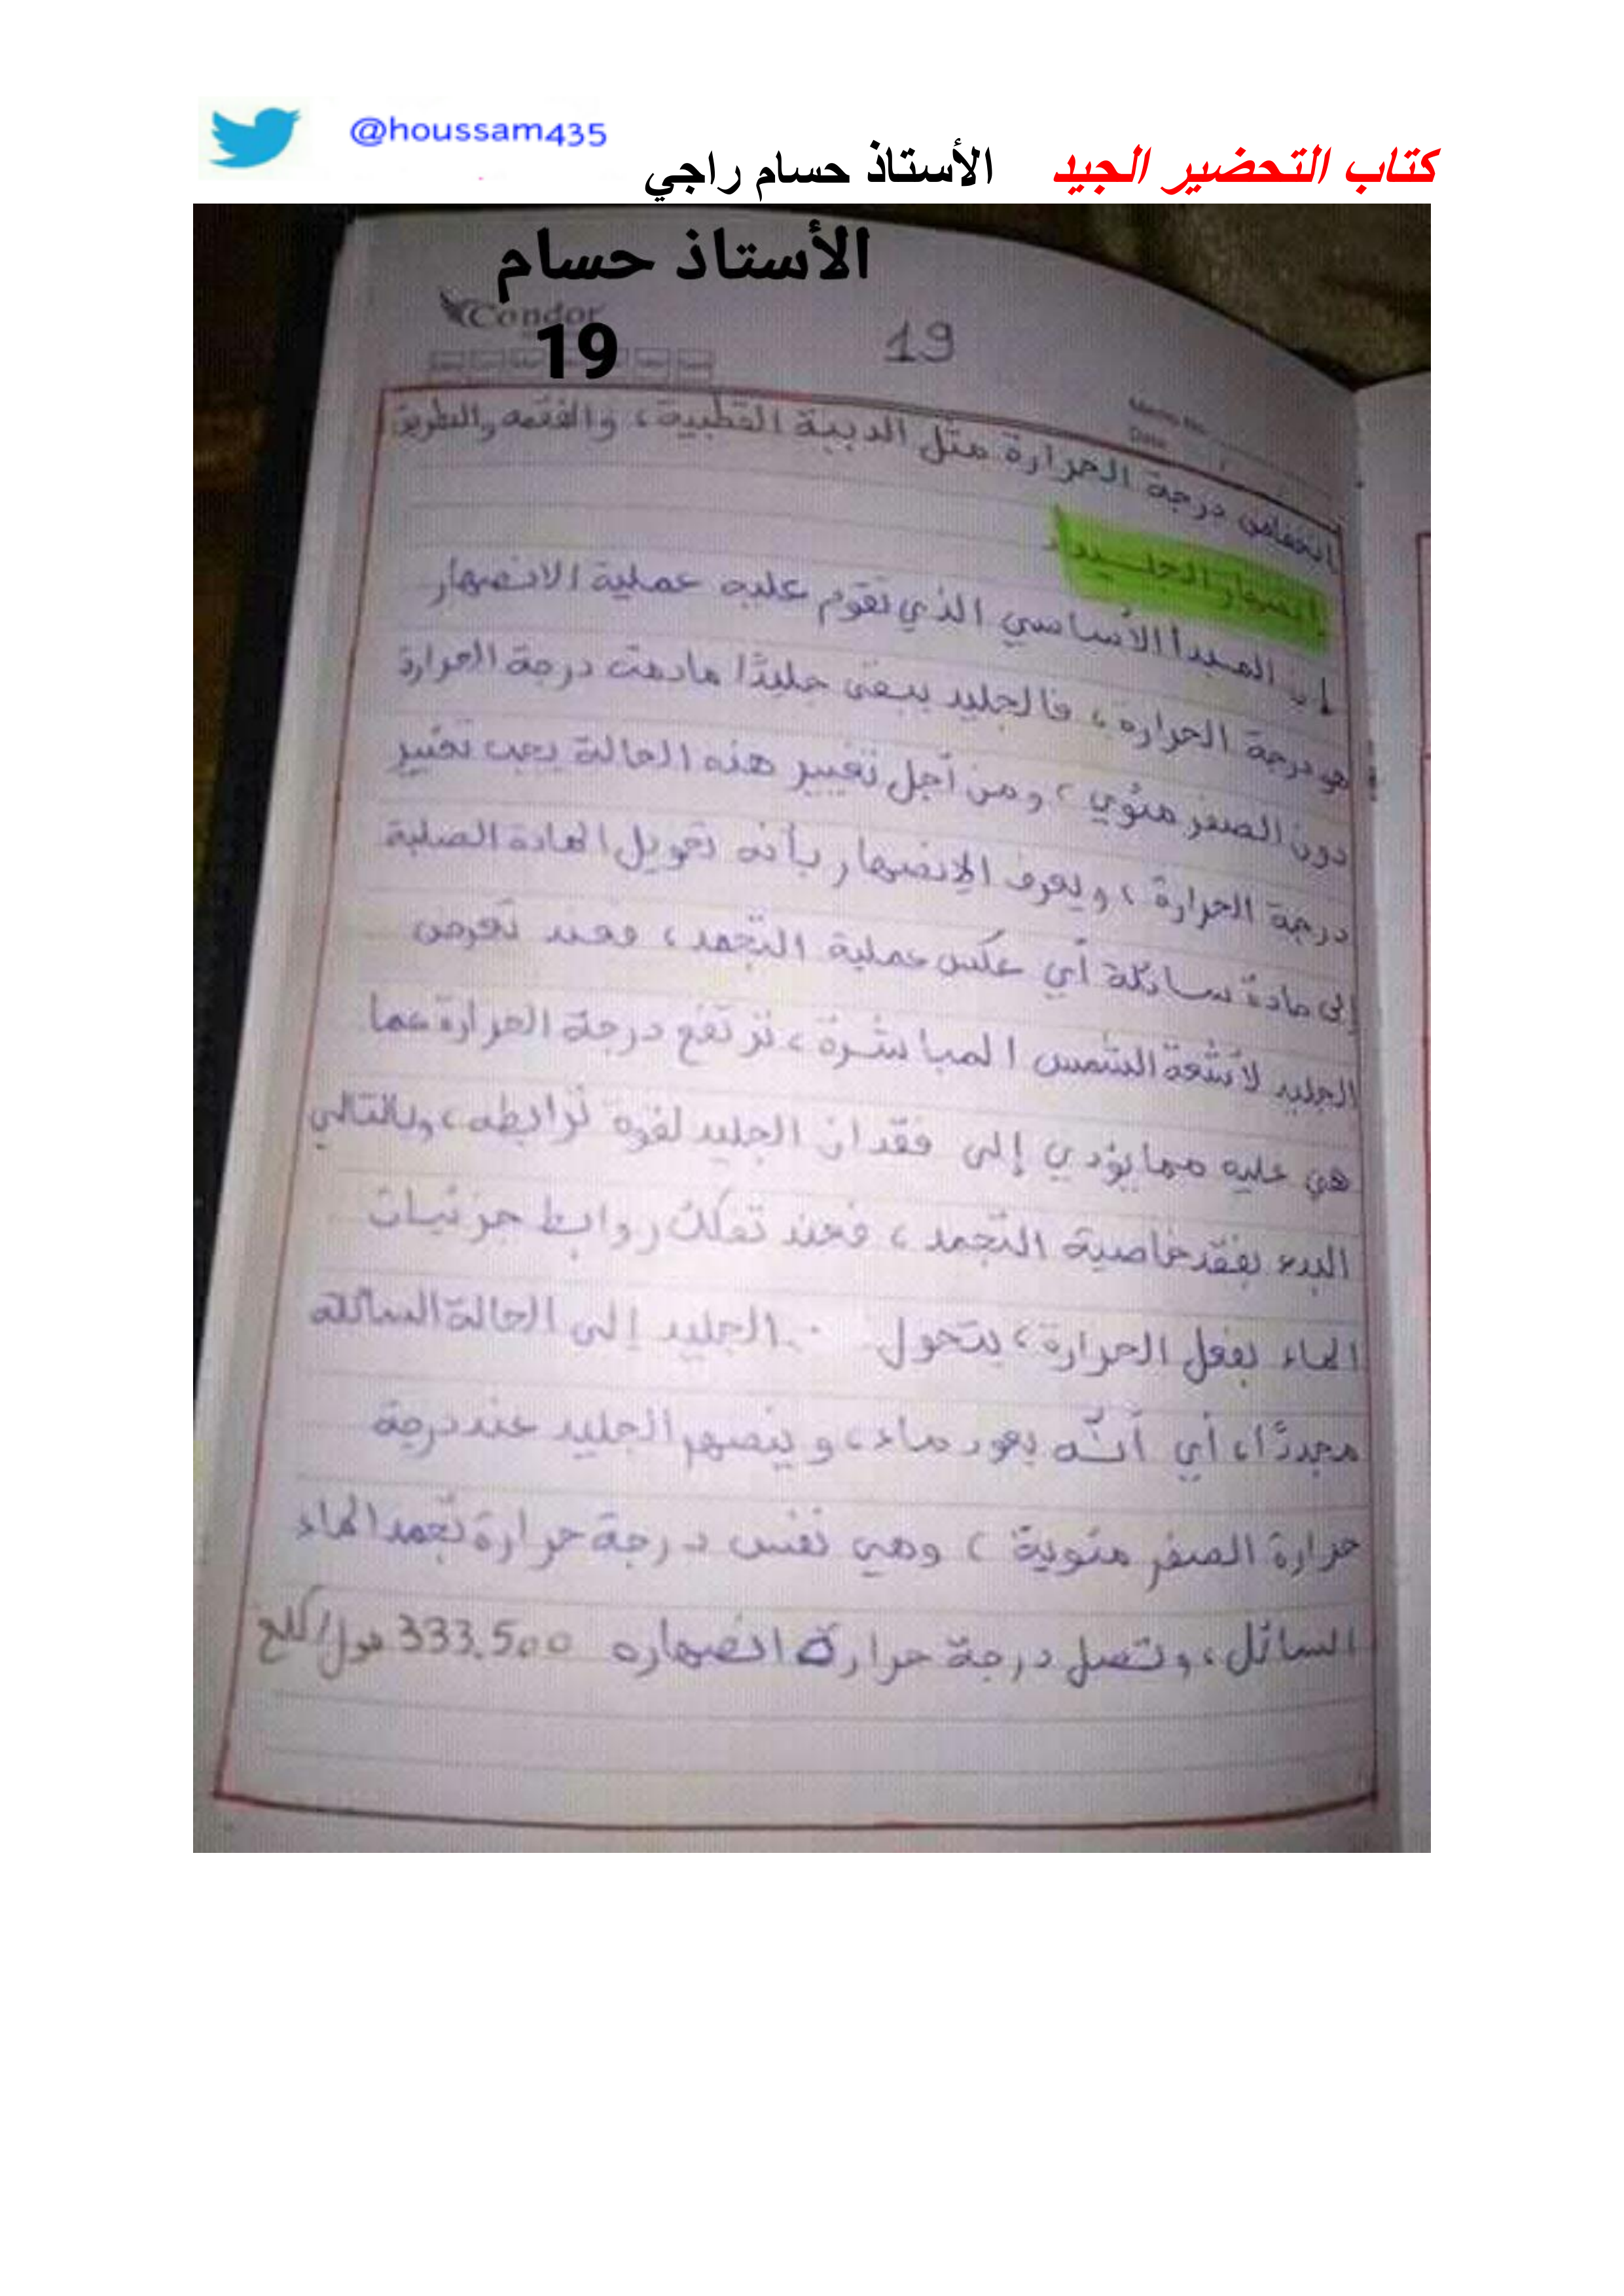 @houssam435
كتاب التحضير الجيد الأستاذ حسام راجي
الأستاذ حسام
Condor
19
19
Memo No.
Date
انخفاض درجة الحرارة مثل الدببة القطبية، والفقمه والطريق
انصهار الجليد:
1_ المبدأ الأساسي الذي تقوم عليه عملية الانصهار
هو درجة الحراره، فالجليد يبقى جليدًا مادمت درجة الحرارة
دون الصفر مئوي، ومن أجل تغيير هذه الحالة يجب تغيير
درجة الحرارة، ويعرف الإنصهار بأنه تحويل المادة الصلبة
إلى مادة سائلة أي عكس عملية التجمد، فعند تعرض
الجليد لأشعة الشمس المباشرة، ترتفع درجة الحرارة عما
هي عليه مما يؤدي إلى فقدان الجليد لقوة ترابطه، وبالتالي
البدء بفقد خاصية التجمد، فعند تفكك روابط جزئيات
الماء بفعل الحرارة، يتحول الجليد إلى الحالة السائلة
مجددًا، أي أنّه يعود ماء، وينصهر الجليد عند درجة
حرارة الصفر مئوية، وهي نفس درجة حرارة تجمد الماء
السائل، وتصل درجة حرارة انصهاره 333.500 جول/كلغ